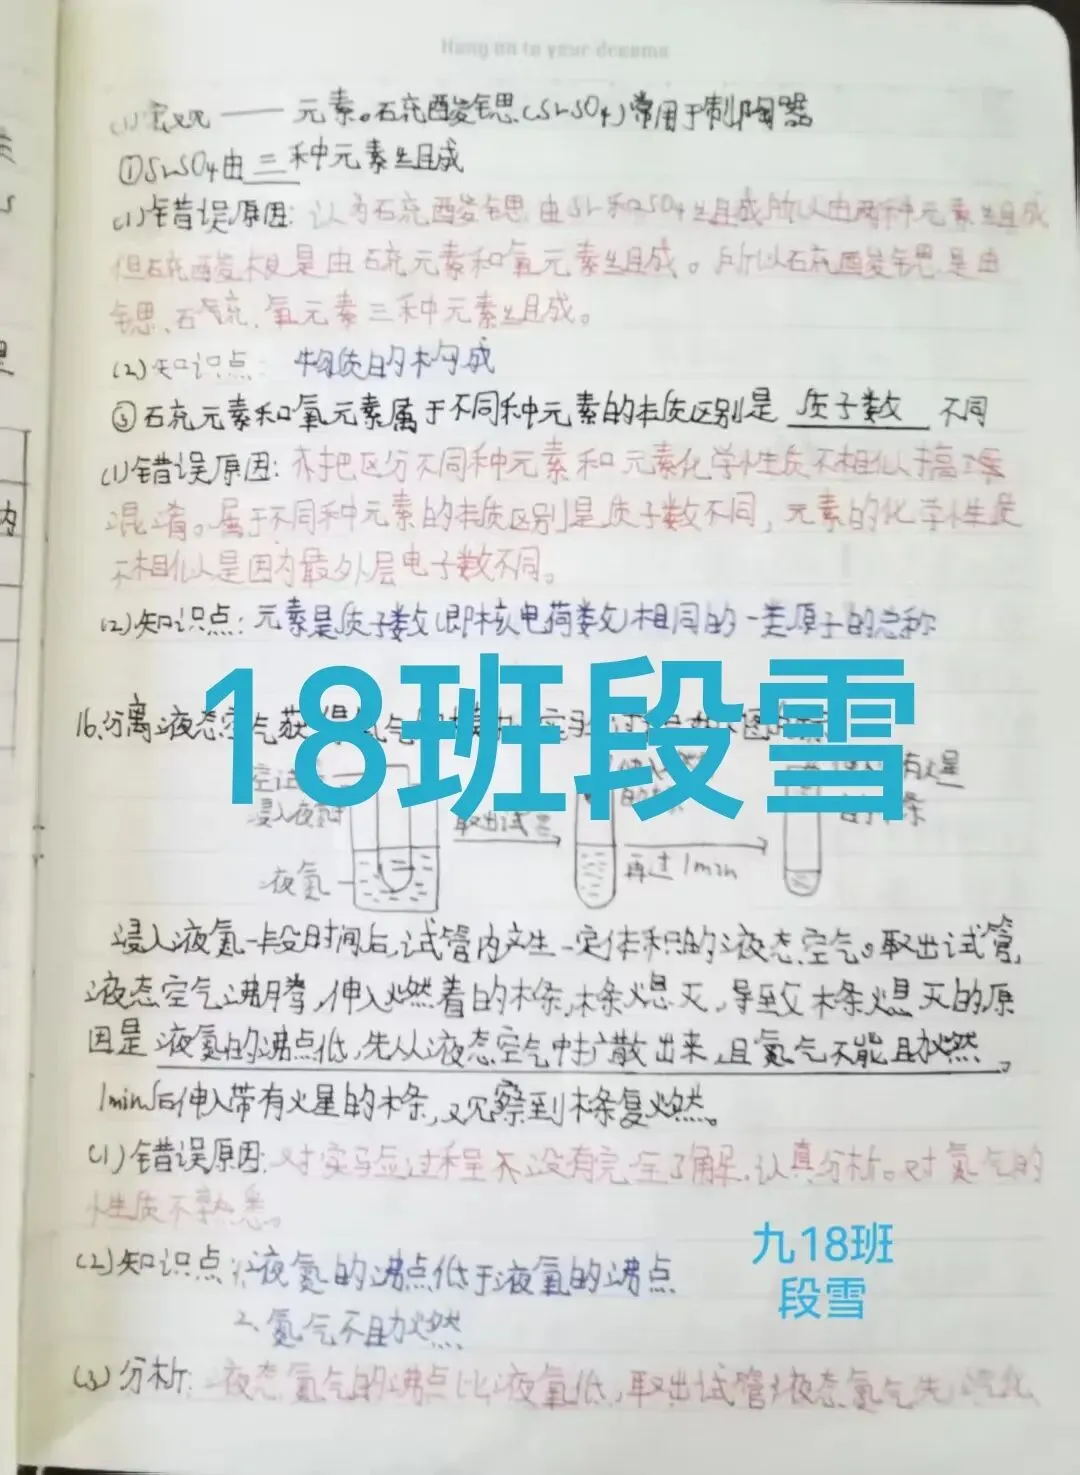 Hang on to your dreams
(1)宏观 —— 元素。硫酸锶(SrSO4)常用于制陶器
①SrSO4由三种元素组成
(1)错误原因: 认为硫酸锶由Sr和SO4组成所以由两种元素组成
但硫酸根是由硫元素和氧元素组成。所以硫酸锶是由
锶、硫、氧元素三种元素组成。
(2)知识点: 物质的构成
③硫元素和氧元素属于不同种元素的本质区别是 质子数 不同
(1)错误原因: 未把区分不同种元素和元素化学性质不相似搞
混淆。属于不同种元素的本质区别是质子数不同，元素的化学性质
不相似是因为最外层电子数不同。
(2)知识点: 元素是质子数(即核电荷数)相同的一类原子的总称
18班段雪
16.分离液态空气获得
浸入液氮
取出试管
有火星
液氮
再过1min
浸入液氮一段时间后,试管内产生一定体积的液态空气。取出试管,
液态空气沸腾,伸入燃着的木条,木条熄灭,导致木条熄灭的原
因是液氮的沸点低,先从液态空气中扩散出来,且氮气不能助燃。
1min后伸入带有火星的木条,观察到木条复燃。
(1)错误原因: 对实验过程不没有完全了解,认真分析。对氮气的
性质不熟悉。
(2)知识点: 1、液氮的沸点低于液氧的沸点
2、氮气不助燃
九18班
段雪
(3)分析: 液态氮气的沸点比液氧低,取出试管液态氮气先汽化